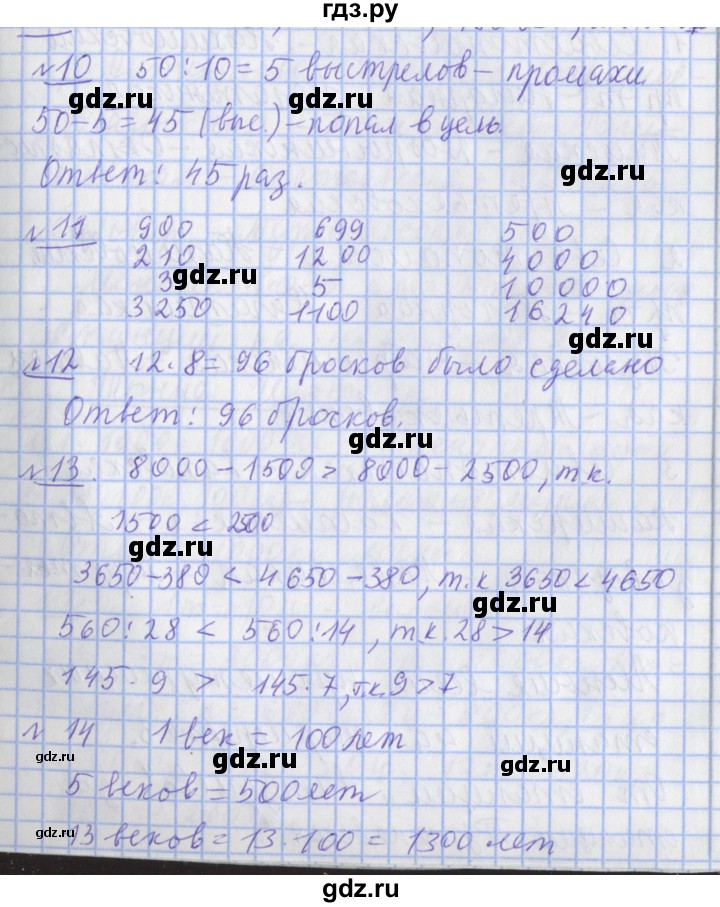 гдз.ру
№10 50:10=5 выстрелов – промахи
gdz.ru gdz.ru
50-5=45 (выс.) – попал в цель.
Ответ: 45 раз.
gdz.ru
№11 900 699 500
210 1200 4000
3 5 10000
gdz.ru
3250 1100 16240
gdz.ru
№12 12·8=96 бросков было сделано
Ответ: 96 бросков.
gdz.ru
№13. 8000-1500 > 8000-2500, т.к.
1500 < 2500
gdz.ru
3650-380 < 4650-380, т.к 3650 < 4650
gdz.ru
560:28 < 560:14, т.к. 28 > 14
145·9 > 145·7, т.к. 9 > 7
№14 1 век = 100 лет
gdz.ru gdz.ru gdz.ru
5 веков = 500 лет
gdz.ru
13 веков = 13·100 = 1300 лет
gdz.ru